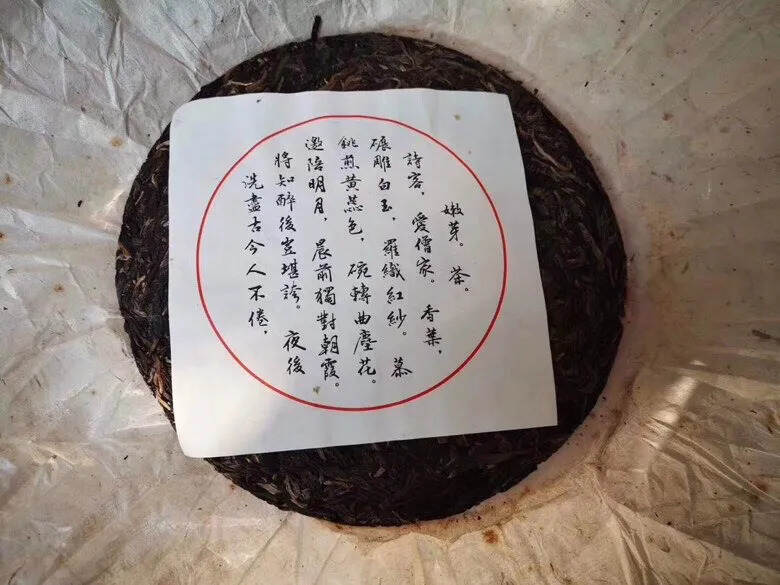 嫩芽。茶。
詩客，愛僧家。香葉，
碾雕白玉，羅織紅紗。慕
銚煎黃蕊色，碗轉曲塵花。
邀陪明月，晨前獨對朝霞。
將知醉後豈堪誇。夜後
洗盡古今人不倦，